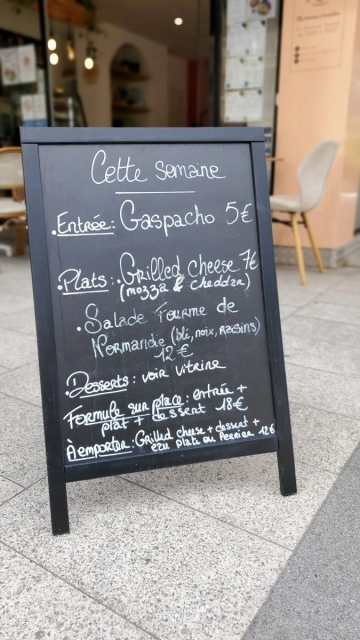 Cette semaine
• Entrée : Gaspacho 5€
• Plats : • Grilled cheese 7€
(mozza & cheddar)
• Salade Fourme de
Normandie (blé, noix, raisins)
12€
• Desserts : voir vitrine
Formule sur place : entrée +
plat + dessert 18€
À emporter : Grilled cheese + dessert +
eau plate ou Perrier 12€